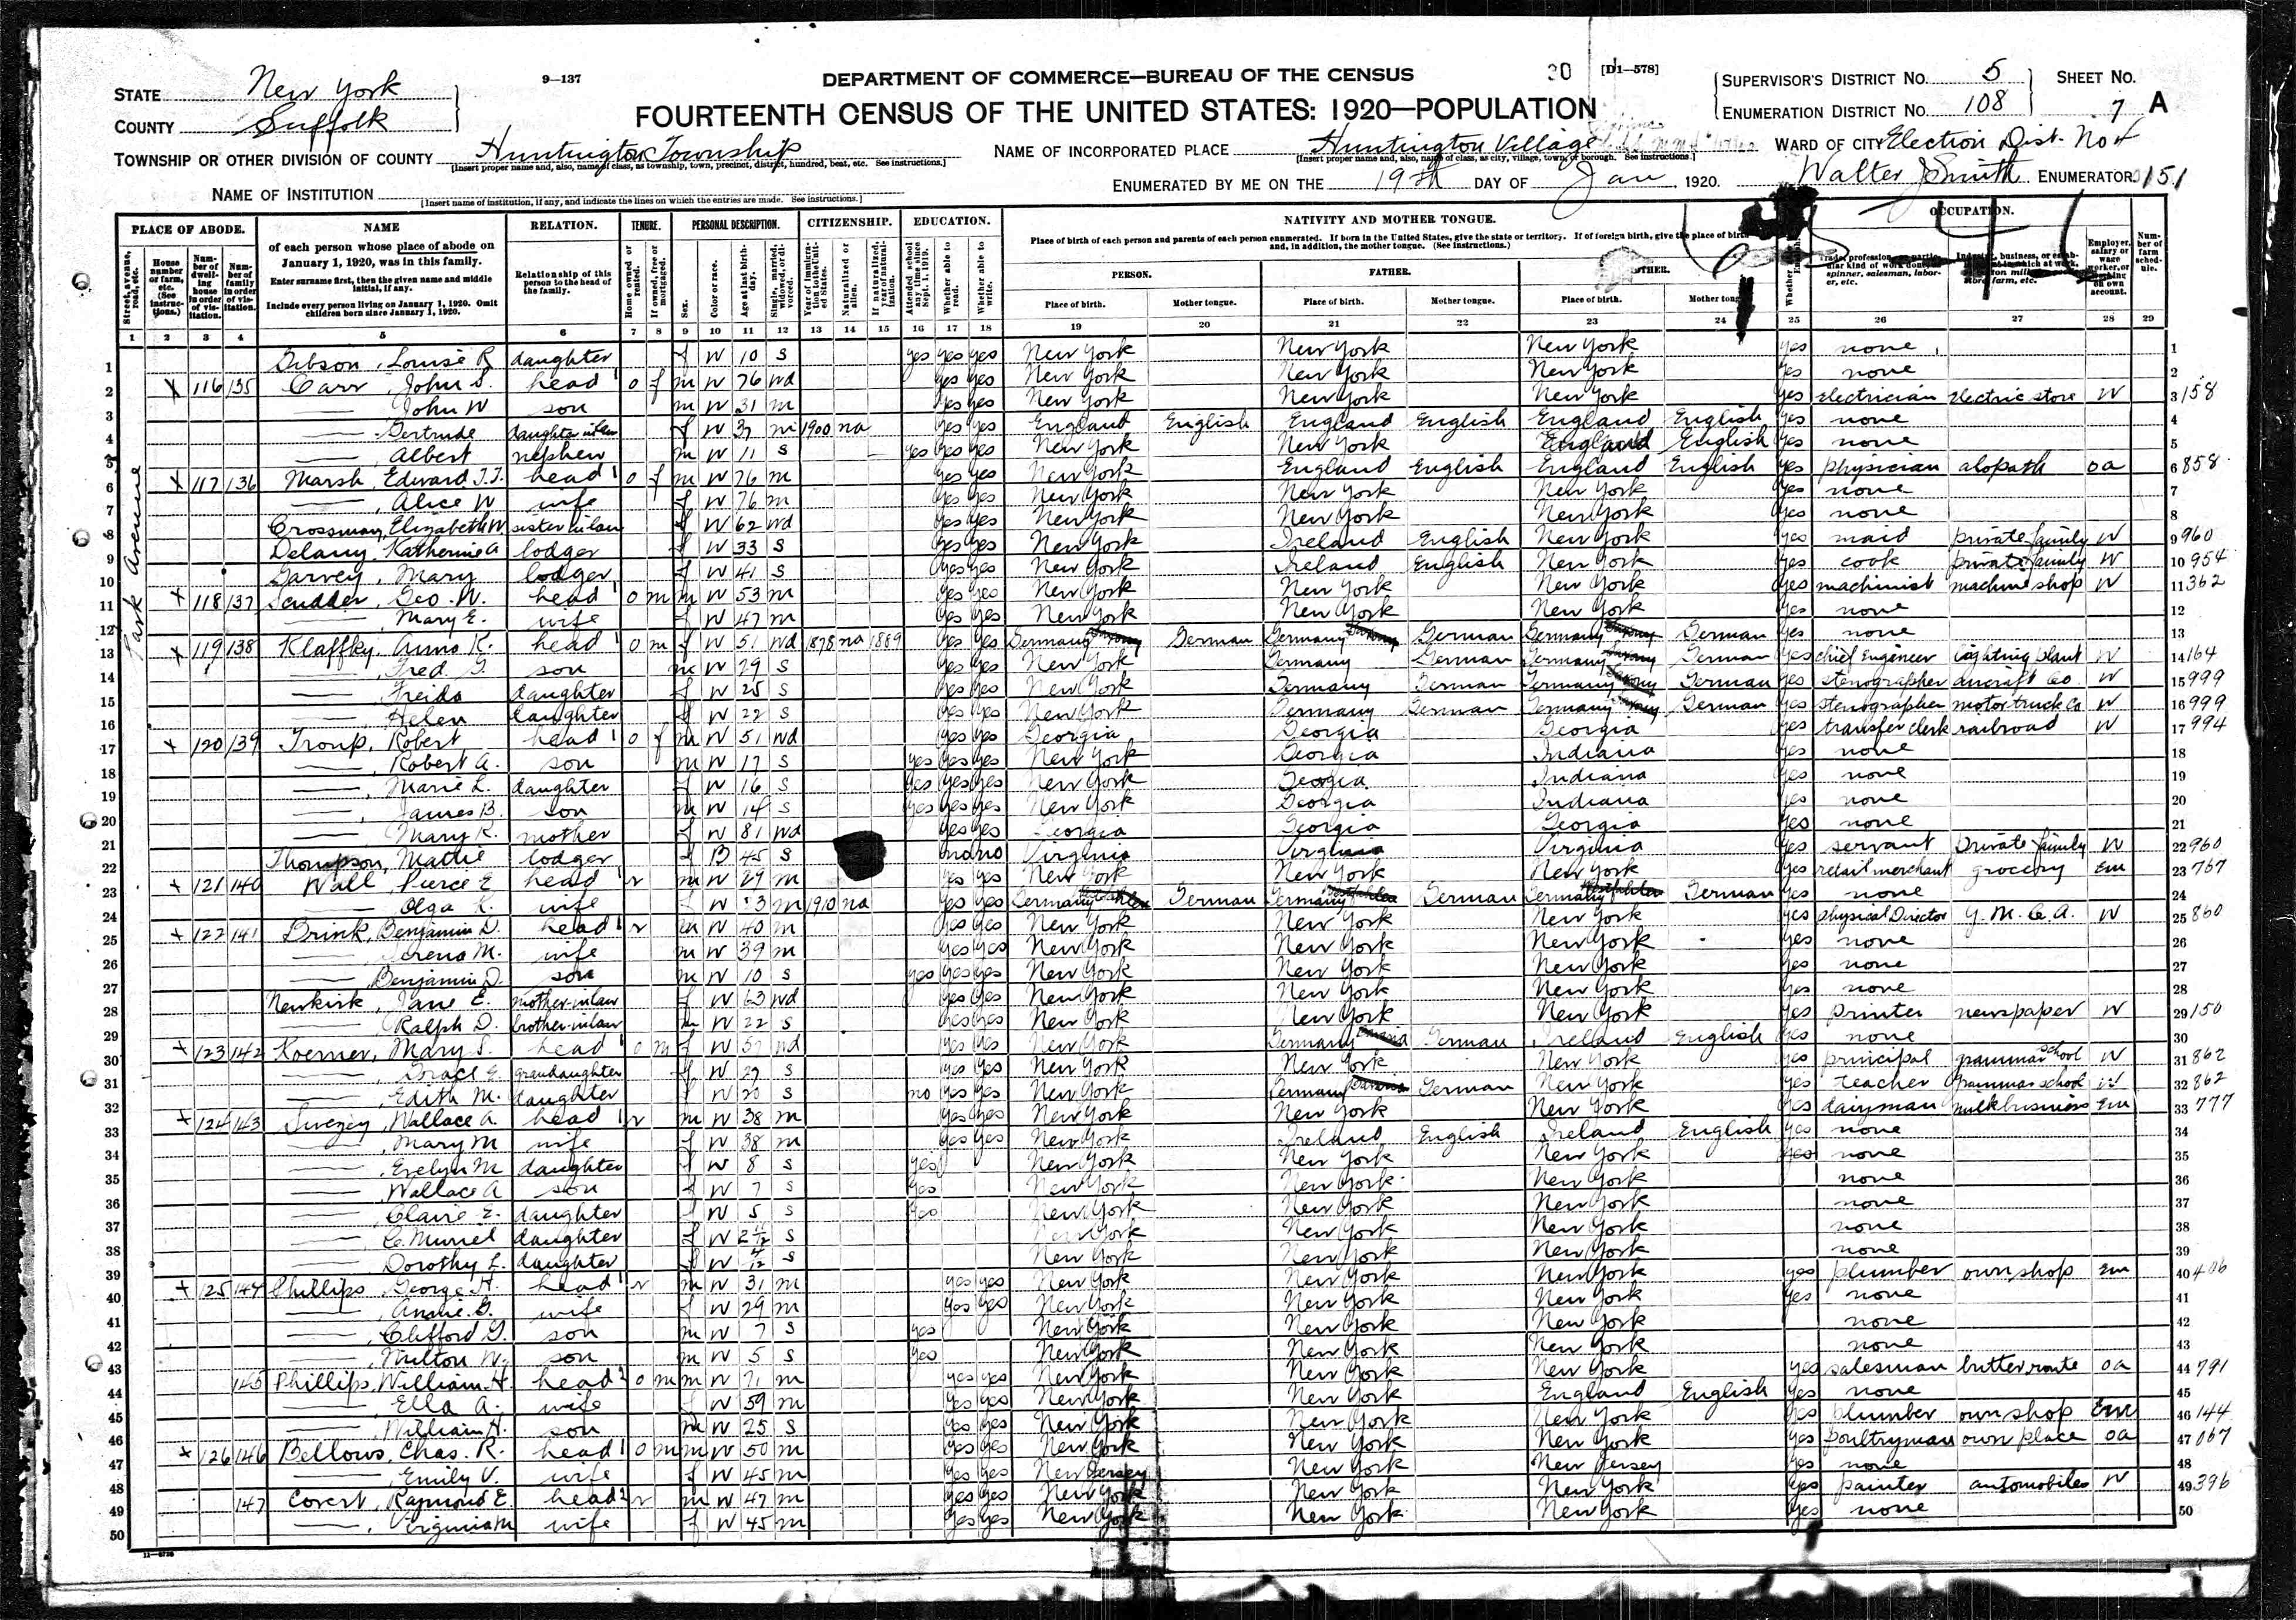 9—137
DEPARTMENT OF COMMERCE—BUREAU OF THE CENSUS
[D1—578]
FOURTEENTH CENSUS OF THE UNITED STATES: 1920—POPULATION
STATE New York
COUNTY Suffolk
SUPERVISOR'S DISTRICT NO. 5
ENUMERATION DISTRICT NO. 108
SHEET NO. 7 A
TOWNSHIP OR OTHER DIVISION OF COUNTY Huntington Township
[Insert proper name and, also, name of class, as township, town, precinct, district, hundred, beat, etc. See instructions.]
NAME OF INCORPORATED PLACE Huntington Village
[Insert proper name and, also, name of class, as city, village, town, or borough. See instructions.]
WARD OF CITY Election Dist. No 4
NAME OF INSTITUTION
[Insert name of institution, if any, and indicate the lines on which the entries are made. See instructions.]
ENUMERATED BY ME ON THE 19th DAY OF Jan, 1920. Walter J Smith ENUMERATOR 151
PLACE OF ABODE. NAME RELATION. TENURE. PERSONAL DESCRIPTION. CITIZENSHIP. EDUCATION. NATIVITY AND MOTHER TONGUE. OCCUPATION.
of each person whose place of abode on January 1, 1920, was in this family.
Enter surname first, then the given name and middle initial, if any.
Include every person living on January 1, 1920. Omit children born since January 1, 1920.
Relationship of this person to the head of the family.
Place of birth of each person and parents of each person enumerated. If born in the United States, give the state or territory. If of foreign birth, give the place of birth and, in addition, the mother tongue. (See instructions.)
PERSON. FATHER. MOTHER.
Place of birth. Mother tongue. Place of birth. Mother tongue. Place of birth. Mother tongue.
1 2 3 4 5 6 7 8 9 10 11 12 13 14 15 16 17 18 19 20 21 22 23 24 25 26 27 28 29
Park Avenue
1 Gibson, Louise R daughter f W 10 s yes yes yes New York New York New York yes none 1
2 X 116 135 Carr, John S. head 1 o f m W 76 wd yes yes New York New York New York yes none 2
3 —, John W son m W 31 m yes yes New York New York New York yes electrician electric store W 3 158
4 — Gertrude daughter in law f W 37 m 1900 na yes yes England English England English England English yes none 4
5 —, Albert nephew m W 11 s yes yes yes New York New York England English yes none 5
6 X 117 136 Marsh, Edward J.J. head 1 o f m W 76 m yes yes New York England English England English yes physician alopath oa 6 858
7 —, Alice W wife f W 76 m yes yes New York New York New York yes none 7
8 Crossman, Elizabeth W. sister in law f W 62 wd yes yes New York New York New York yes none 8
9 Delany, Katherine A lodger f W 33 s yes yes New York Ireland English New York yes maid private family W 9 960
10 Garvey, Mary lodger f W 41 s yes yes New York Ireland English New York yes cook private family W 10 954
11 X 118 137 Scudder, Geo. W. head 1 o m m W 53 m yes yes New York New York New York yes machinist machine shop W 11 362
12 —, Mary E. wife f W 47 m yes yes New York New York New York yes none 12
13 X 119 138 Klaffky, Anna K. head 1 o m f W 51 wd 1878 na 1889 yes yes Germany German Germany German Germany German yes none 13
14 —, Fred G son m W 29 s yes yes New York Germany German Germany German yes chief Engineer lighting plant W 14 164
15 — Freida daughter f W 25 s yes yes New York Germany German Germany German yes stenographer aircraft Co. W 15 999
16 —, Helen daughter f W 22 s yes yes New York Germany German Germany German yes stenographer motor truck Co W 16 999
17 X 120 139 Troup, Robert head 1 o f m W 51 wd yes yes Georgia Georgia Georgia yes transfer clerk railroad W 17 994
18 —, Robert A. son m W 17 s yes yes yes New York Georgia Indiana yes none 18
19 —, Marie L. daughter f W 16 s yes yes yes New York Georgia Indiana yes none 19
20 —, James B. son m W 14 s yes yes yes New York Georgia Indiana yes none 20
21 —, Mary K. mother f W 81 wd yes yes Georgia Georgia Georgia yes none 21
22 Thompson, Mattie lodger f B 45 s no no Virginia Virginia Virginia yes servant private family W 22 960
23 X 121 140 Wall, Pierce E head 1 r m W 29 m yes yes New York New York New York yes retail merchant grocery Em 23 767
24 — Olga K. wife f W m 1910 na yes yes Germany German Germany German Germany German yes none 24
25 X 122 141 Brink, Benjamin D. head 1 r m W 40 m yes yes New York New York New York yes physical Director Y.M.C.A. W 25 860
26 — M. wife m W 39 m yes yes New York New York New York yes none 26
27 —, Benjamin D. son m W 10 s yes yes yes New York New York New York yes none 27
28 Newkirk, Jane E. mother-in law f W 63 wd yes yes New York New York New York yes none 28
29 — Ralph D. brother-in law m W 22 s yes yes New York New York New York yes printer newspaper W 29 150
30 X 123 142 Koerner, Mary S. head 1 o m f W wd yes yes New York Germany German Ireland English yes none 30
31 —, Grace E. granddaughter f W 29 s yes yes New York New York New York yes principal grammar school W 31 862
32 —, Edith M. daughter f W 20 s no yes yes New York Germany German New York yes teacher grammar school W 32 862
33 X 124 143 Swezey, Wallace A. head 1 r m W 38 m yes yes New York New York New York yes dairyman milk business Em 33 777
34 —, Mary M wife f W 38 m yes yes New York Ireland English Ireland English yes none 34
35 —, Evelyn M daughter f W 8 s yes New York New York New York yes none 35
36 —, Wallace A son f W 7 s yes New York New York New York none 36
37 —, Claire E. daughter f W 5 s yes New York New York New York none 37
38 —, C. Muriel daughter f W 2 11/12 s New York New York New York none 38
39 —, Dorothy L. daughter f W 4/12 s New York New York New York none 39
40 X 125 144 Phillips, George H. head 1 r m W 31 m yes yes New York New York New York yes plumber own shop Em 40 406
41 —, Annie G. wife f W 29 m yes yes New York New York New York yes none 41
42 —, Clifford G. son m W 7 s yes New York New York New York none 42
43 —, Milton W. son m W 5 s yes New York New York New York none 43
44 145 Phillips, William H. head 2 o m m W 71 m yes yes New York New York New York yes salesman butter route oa 44 791
45 —, Ella A. wife f W 59 m yes yes New York New York England English yes none 45
46 —, William H. son m W 25 s yes yes New York New York New York yes plumber own shop Em 46 144
47 X 126 146 Bellows, Chas. R. head 1 o m m W 50 m yes yes New York New York New York yes poultryman own place oa 47 067
48 —, Emily V. wife f W 45 m yes yes New Jersey New York New Jersey yes none 48
49 147 Covert, Raymond E. head 2 r m W 47 m yes yes New York New York New York yes painter automobiles W 49 396
50 —, Virginia M wife f W 45 m yes yes New York New York New York yes none 50
11—6726